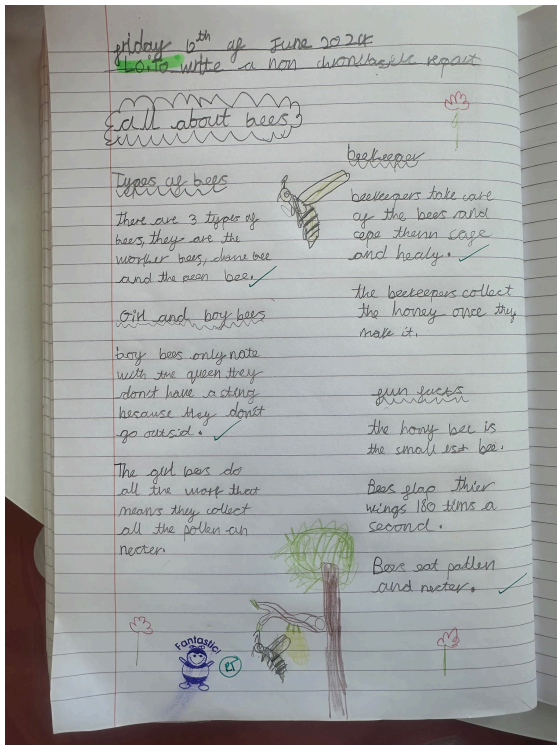 friday 12th of June 2024
L.o.i to write a non chronlogilc report
all about bees
Types of bees
There are 3 types of
bees, they are the
worker bees, drone bee
and the qeen bee.
Girl and boy bees
boy bees only mate
with the queen they
don't have a sting
because they don't
go outsid.
The girl bees do
all the work that
means they collect
all the pollen an
necter.
beekeeper
beekeepers take care
of the bees and
cepe them safe
and healy.
the beekeepers collect
the honey once thy
make it.
fun facts
the hony bee is
the small est bee.
Bees flap thier
wings 180 tims a
second.
Bees eat pollen
and necter.
Fantastic!
RT